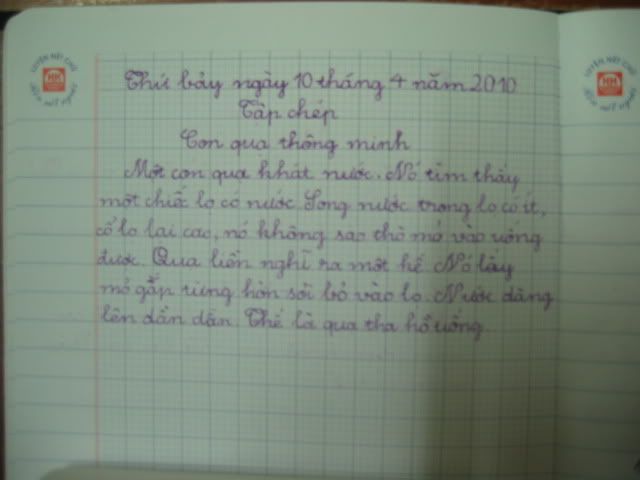 Thứ bảy ngày 10 tháng 4 năm 2010
Tập chép
Con quạ thông minh
Một con quạ khát nước. Nó tìm thấy
một chiếc lọ có nước. Song nước trong lọ có ít,
cổ lọ lại cao, nó không sao thò mỏ vào uống
được. Quạ liền nghĩ ra một kế. Nó lấy
mỏ gắp từng hòn sỏi bỏ vào lọ. Nước dâng
lên dần dần. Thế là quạ tha hồ uống.
LUYỆN NÉT CHỮ
RÈN NẾT NGƯỜI
HH
LUYỆN NÉT CHỮ
RÈN NẾT NGƯỜI
HH